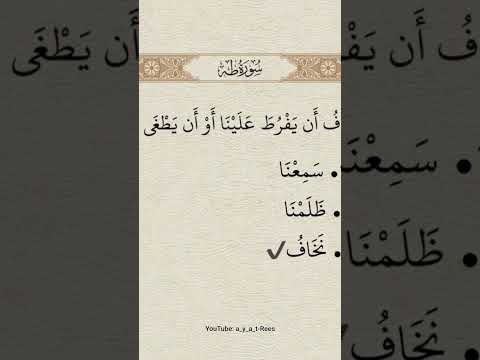 سُورَةُ طه
فُ أَن يَفْرُطَ عَلَيْنَا أَوْ أَن يَطْغَى
• سَمِعْنَا
• ظَلَمْنَا
• نَخَافُ ✔
YouTube: a_y_a_t-Rees